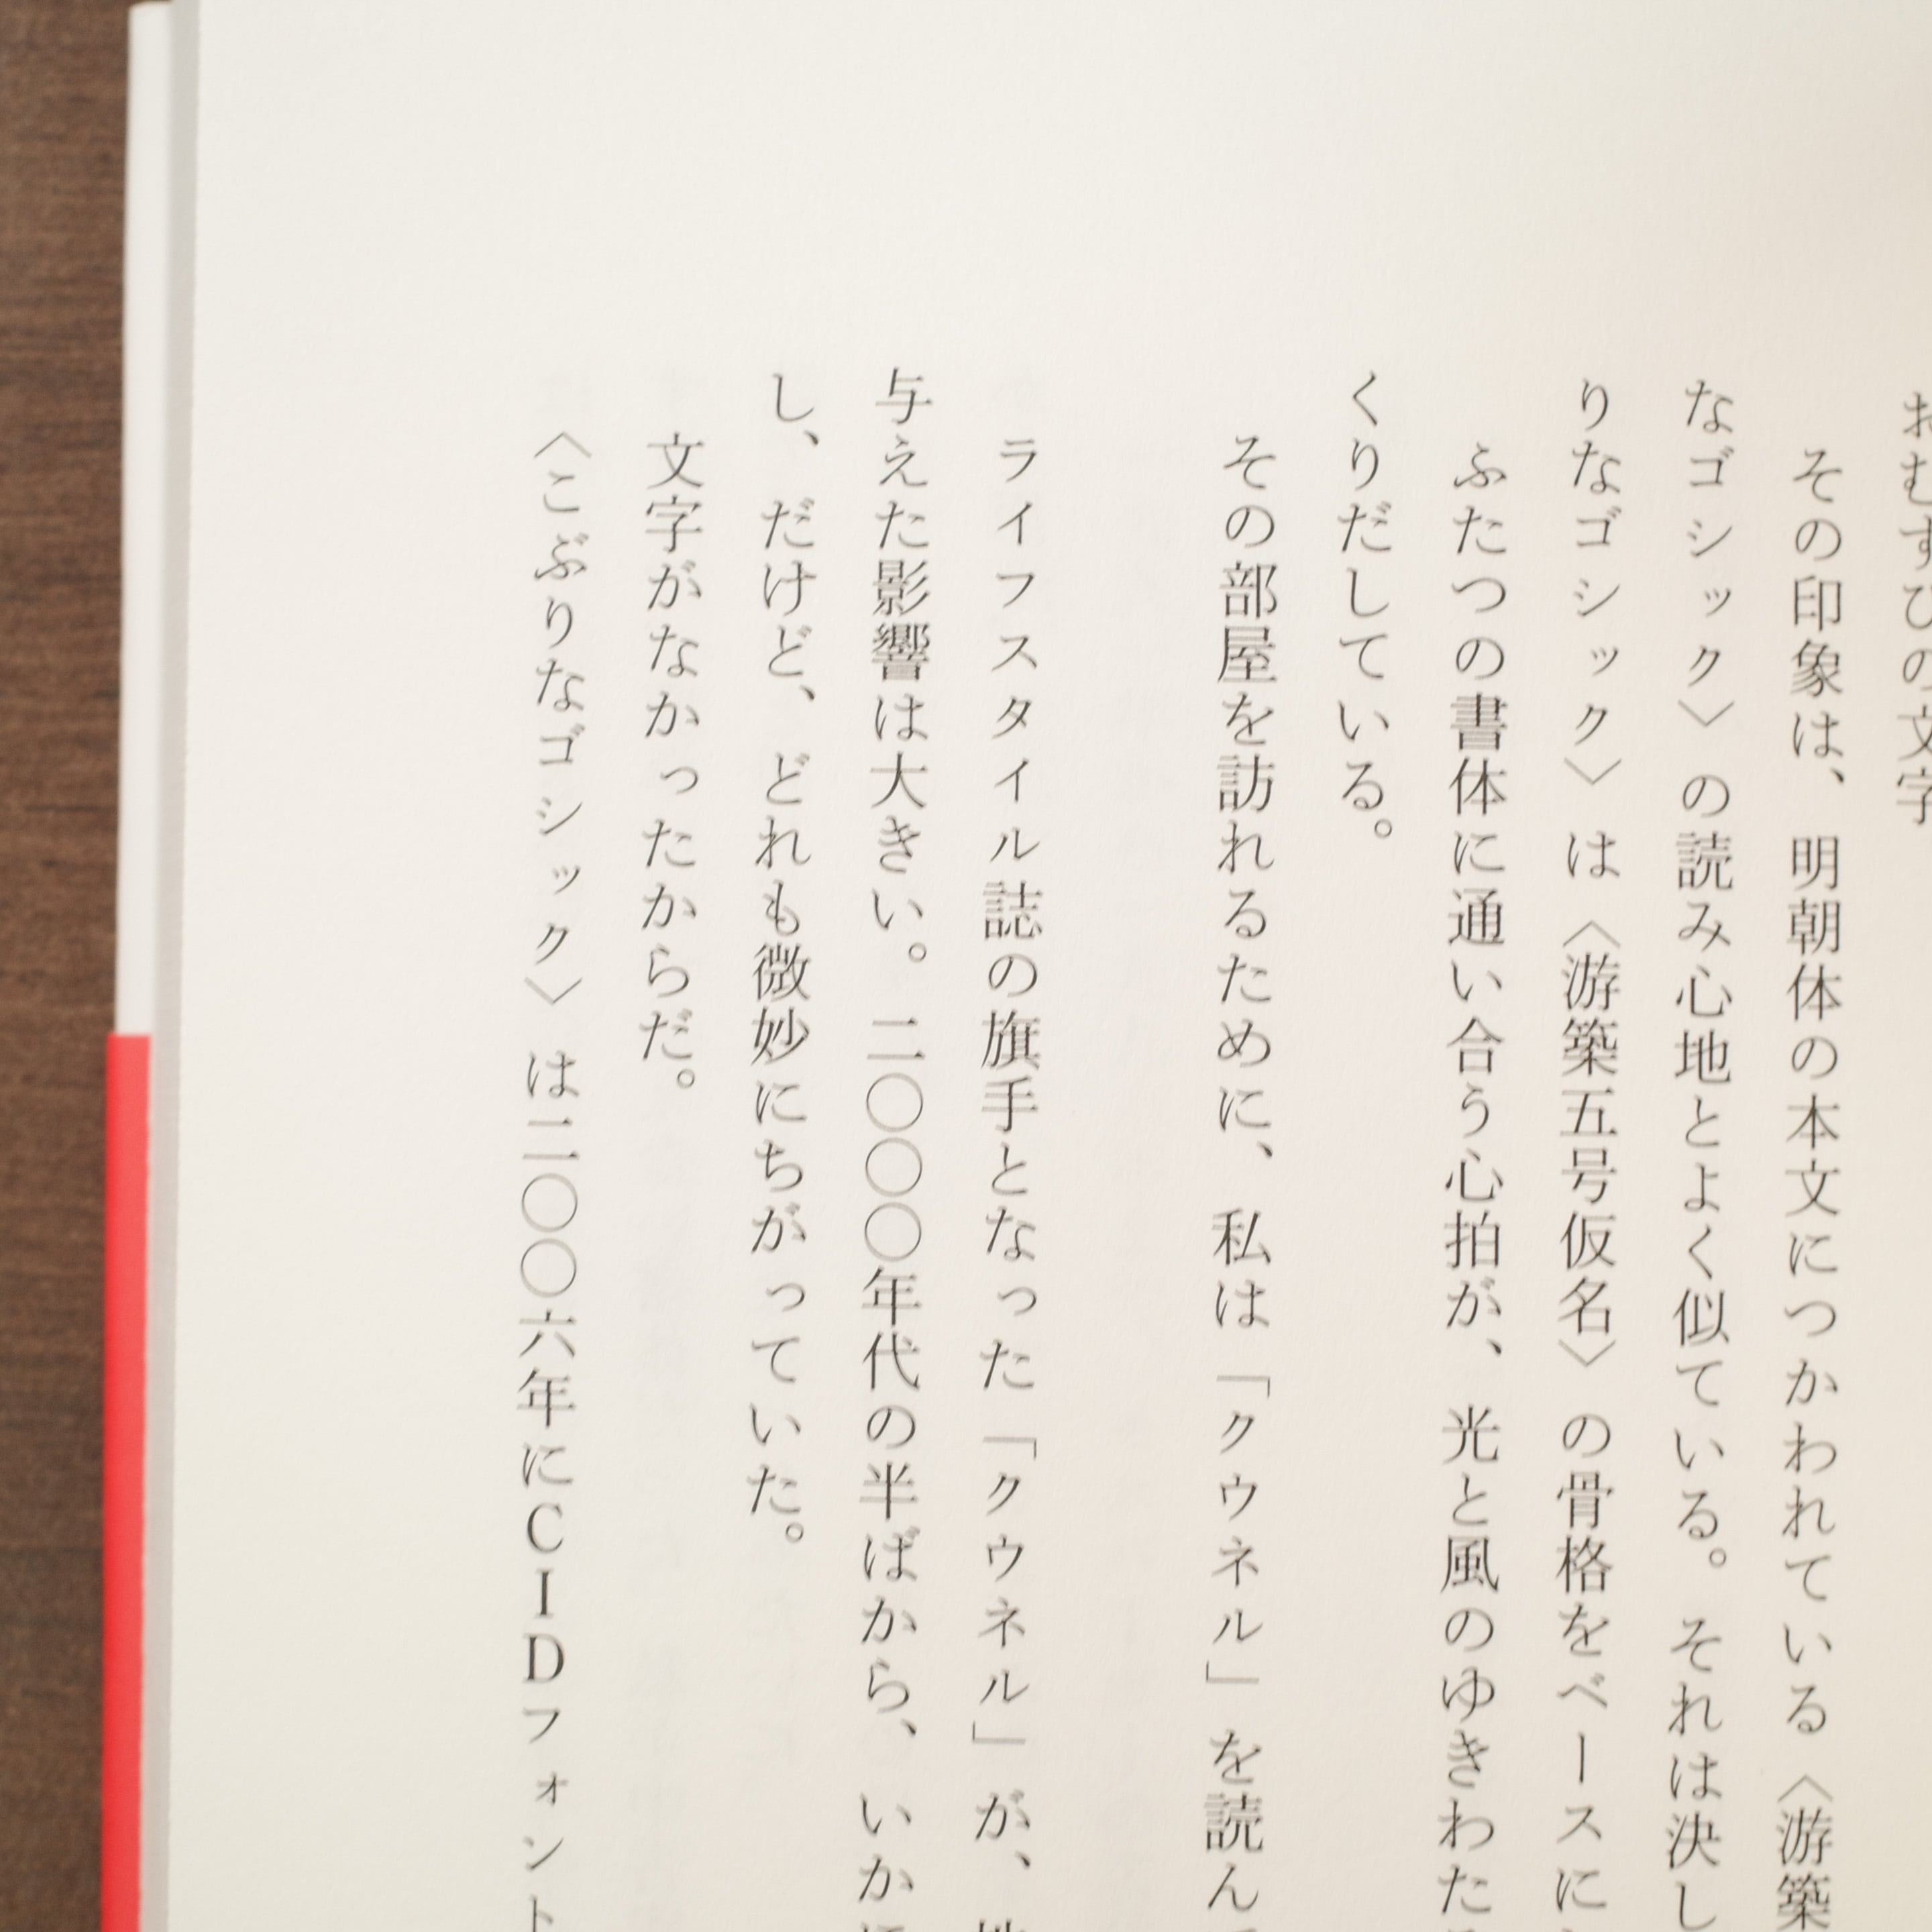 おむすびの文字
その印象は、明朝体の本文につかわれている〈游築
なゴシック〉の読み心地とよく似ている。それは決し
りなゴシック〉は〈游築五号仮名〉の骨格をベースに
ふたつの書体に通い合う心拍が、光と風のゆきわた
くりだしている。
その部屋を訪れるために、私は「クウネル」を読ん
ライフスタイル誌の旗手となった「クウネル」が、
与えた影響は大きい。二〇〇〇年代の半ばから、いか
し、だけど、どれも微妙にちがっていた。
文字がなかったからだ。
〈こぶりなゴシック〉は二〇〇六年にCIDフォント